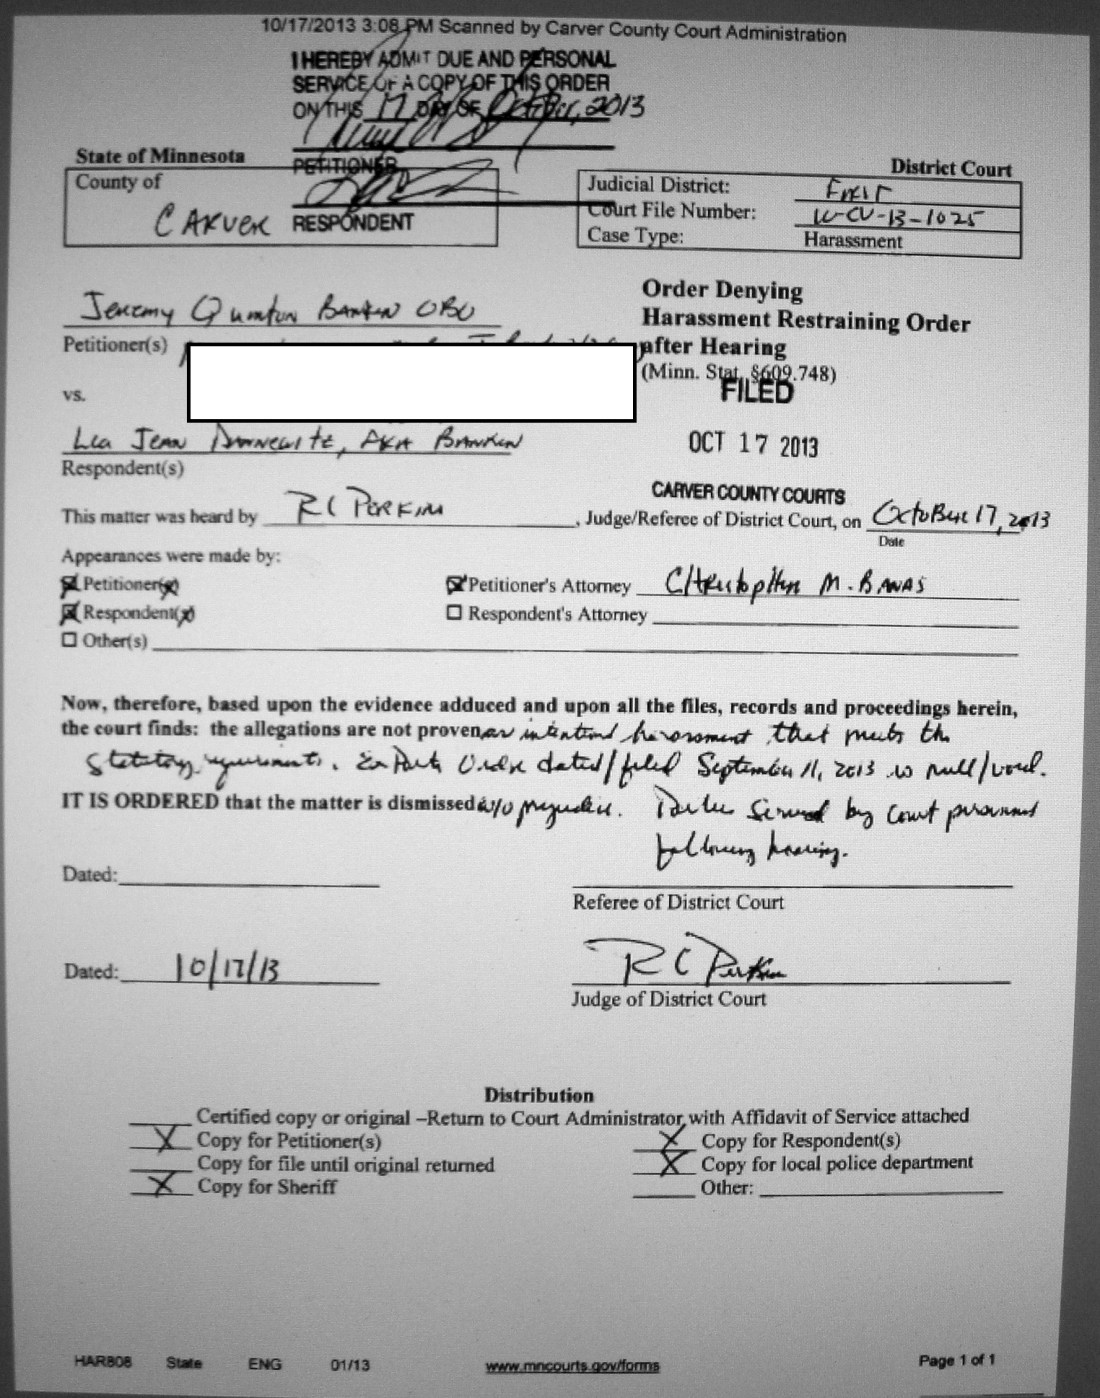 10/17/2013 3:08 PM Scanned by Carver County Court Administration
I HEREBY ADMIT DUE AND PERSONAL
SERVICE OF A COPY OF THIS ORDER
ON THIS 17 DAY OF October, 2013
PETITIONER
RESPONDENT
State of Minnesota
County of
CARVER
District Court
Judicial District: FIRST
Court File Number: 10-CV-13-1025
Case Type: Harassment
Jeremy Quinton Banken OBO
Petitioner(s)
vs.
Lea Jean Dannewitz, AKA Banken
Respondent(s)
Order Denying
Harassment Restraining Order
after Hearing
(Minn. Stat. §609.748)
FILED
OCT 17 2013
CARVER COUNTY COURTS
This matter was heard by RC Perkins, Judge/Referee of District Court, on October 17, 2013
Date
Appearances were made by:
Petitioner(s) Petitioner's Attorney Christopher M. Banas
Respondent(s) Respondent's Attorney
Other(s)
Now, therefore, based upon the evidence adduced and upon all the files, records and proceedings herein,
the court finds: the allegations are not proven as intentional harassment that meets the
statutory requirements. Ex Parte Order dated/filed September 11, 2013 is null/void.
IT IS ORDERED that the matter is dismissed w/o prejudice. Parties served by court personnel
following hearing.
Dated:
Referee of District Court
Dated: 10/17/13
RC Perkins
Judge of District Court
Distribution
Certified copy or original –Return to Court Administrator with Affidavit of Service attached
X Copy for Petitioner(s) X Copy for Respondent(s)
Copy for file until original returned X Copy for local police department
X Copy for Sheriff Other:
HAR808 State ENG 01/13 www.mncourts.gov/forms Page 1 of 1